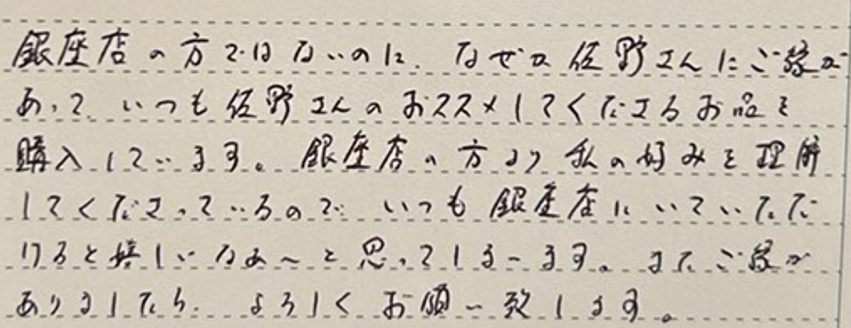 銀座店の方ではないのに、なぜか佐野さんにご縁が
あって、いつも佐野さんのおススメしてくださるお品を
購入しています。銀座店の方より私の好みを理解
してくださっているので、いつも銀座店にいていただ
けると嬉しいなぁ〜と思ってしまいます。またご縁が
ありましたら、よろしくお願い致します。